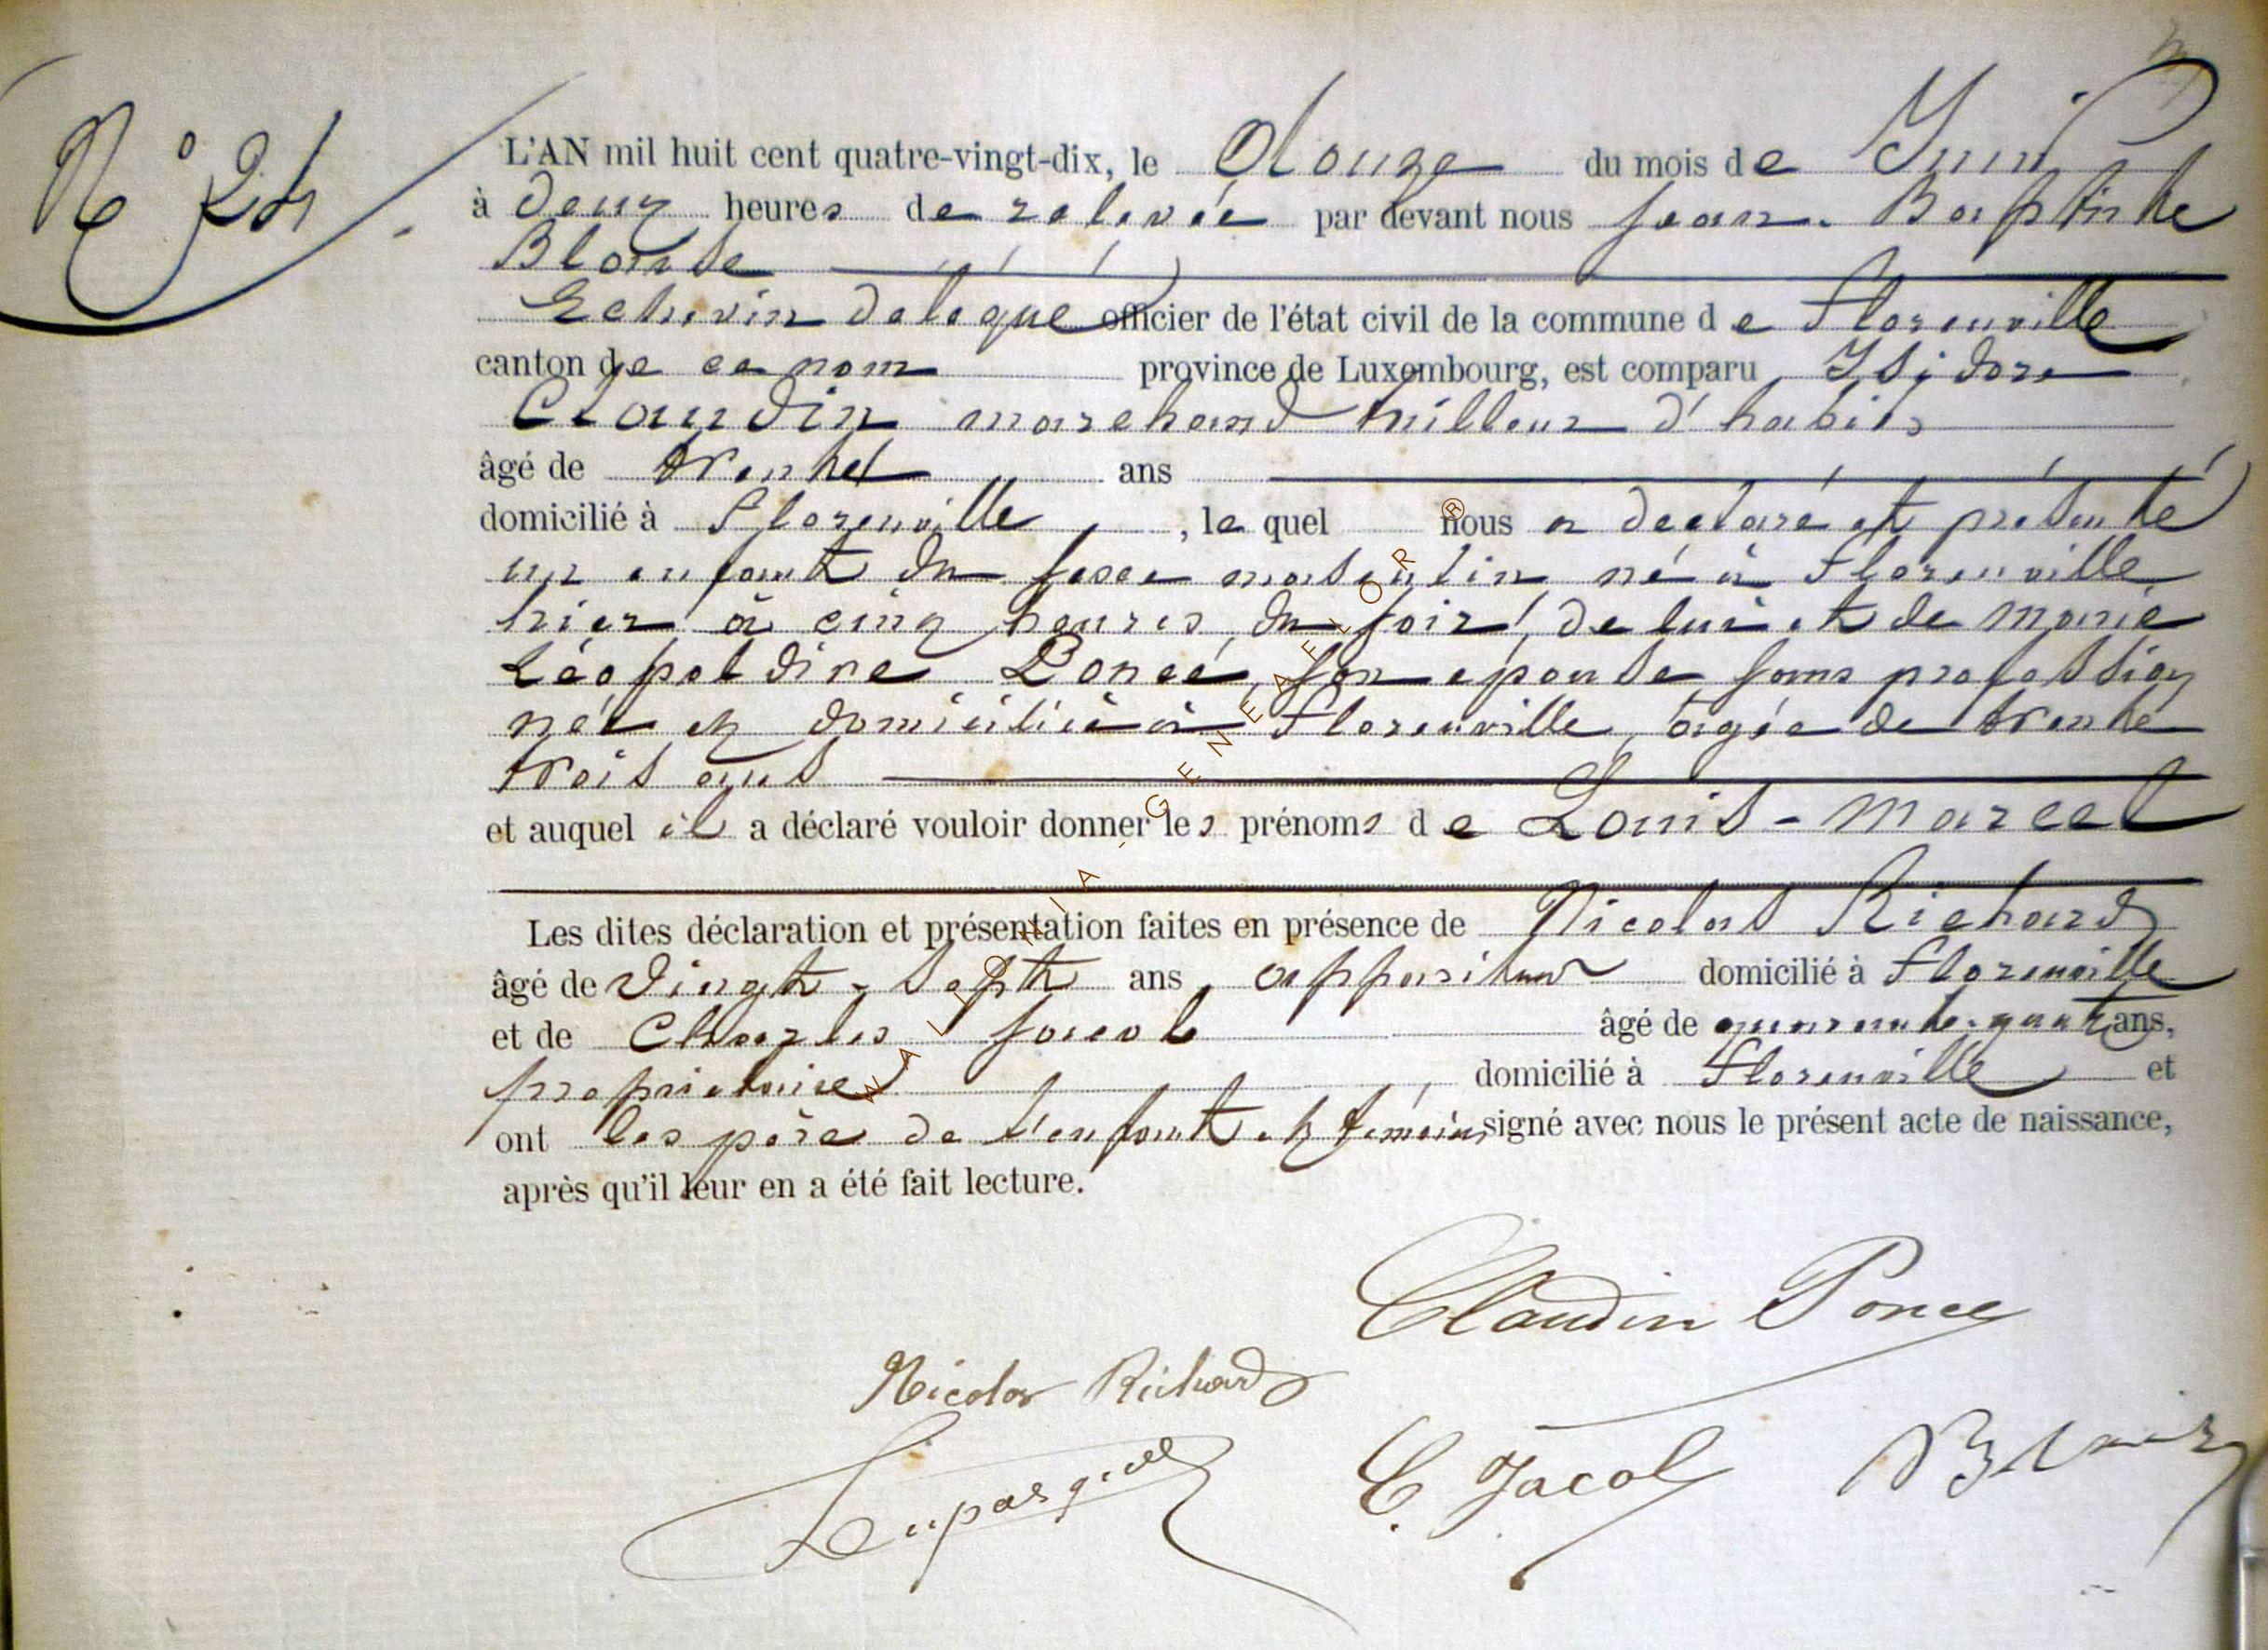 N° 24
L'AN mil huit cent quatre-vingt-dix, le Douze du mois de Juin
à deux heures de relevée par devant nous Jean-Baptiste
Blaise
Echevin délégué officier de l'état civil de la commune de Florenville
canton de ce nom province de Luxembourg, est comparu Isidore
Claudin marchand tailleur d'habits
âgé de trente ans
domicilié à Florenville, le quel nous a déclaré et présenté
un enfant du sexe masculin né à Florenville
hier à cinq heures du soir, de lui et de Marie
Léopoldine Poncé, son épouse sans profession
née et domiciliée à Florenville, âgée de trente
trois ans
et auquel il a déclaré vouloir donner les prénoms de Louis-Marcel
Les dites déclaration et présentation faites en présence de Nicolas Richard
âgé de vingt-sept ans, appariteur domicilié à Florenville
et de Charles Jacob âgé de quarante-quatre ans,
propriétaire, domicilié à Florenville et
ont les père de l'enfant et témoins signé avec nous le présent acte de naissance,
après qu'il leur en a été fait lecture.
Claudin Ponce
Nicolas Richard
C. Jacob
WALLONIA - GENEAFLOR ®